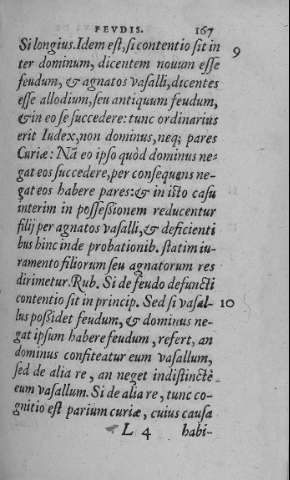 FEVDIS. 167
Si longius. Idem est, si contentio sit in
ter dominum, dicentem nouum esse 9
feudum, & agnatos vasalli, dicentes
esse allodium, seu antiquum feudum,
& in eo se succedere: tunc ordinarius
erit Iudex, non dominus, neq; pares
Curiæ: Nã eo ipso quòd dominus ne-
gat eos succedere, per consequens ne-
gat eos habere pares: & in isto casu
interim in possessionem reducentur
filij per agnatos vasalli, & deficienti
bus hinc inde probationib. statim iu-
ramento filiorum seu agnatorum res
dirimetur. Rub. Si de feudo defuncti
contentio sit in princip. Sed si vasal- 10
lus possidet feudum, & dominus ne-
gat ipsum habere feudum, refert, an
dominus confiteatur eum vasallum,
sed de alia re, an neget indistinctè
eum vasallum. Si de alia re, tunc co-
gnitio est parium curiæ, cuius causa
L 4 habi-